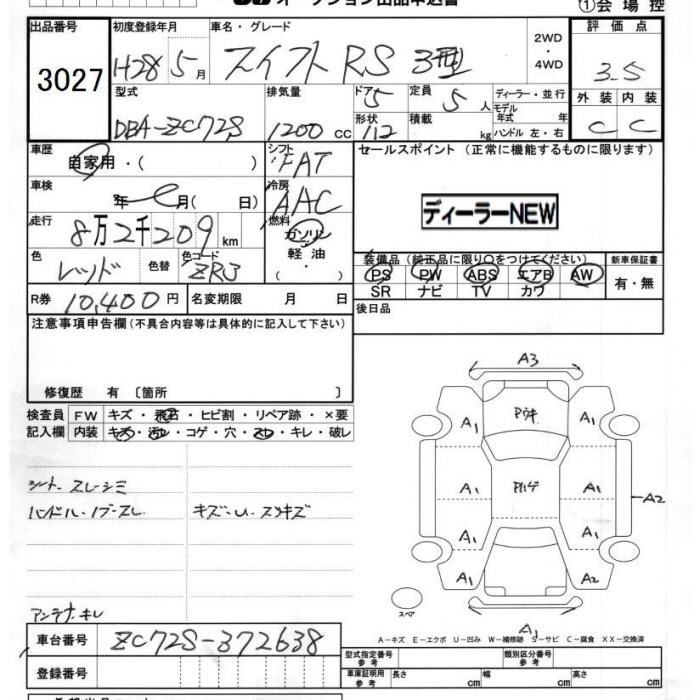 オークション出品申込書
①会場控
出品番号
3027
初度登録年月
H28 5月
車名・グレード
スイフト RS 3型
2WD
・
4WD
評価点
3.5
型式
DBA-ZC72S
排気量
1200 cc
ドア 5
形状 112
定員 5 人
積載 kg
ディーラー・並行
モデル年式 年
ハンドル 左・右
外装 内装
C C
車歴
自家用・( )
シフト
FAT
セールスポイント (正常に機能するものに限ります)
車検
年 月( 日)
冷房
AAC
ディーラーNEW
走行
8万2千209 km
燃料
ガソリン
軽油
( ・ )
色
レッド
色替
色コード
ZR3
装備品 (純正品に限り〇をつけてください)
PS PW ABS エアB AW
SR ナビ TV カワ
新車保証書
有・無
R券 10,400 円
名変期限 月 日
後日品
注意事項申告欄 (不具合内容等は具体的に記入して下さい)
修復歴 有 〔箇所 〕
検査員 FW キズ・飛石・ヒビ割・リペア跡・×要
記入欄 内装 キズ・汚レ・コゲ・穴・スレ・キレ・破レ
シート スレ・シミ
ハンドル・ノブ・スレ
キズ・U・スリキズ
アンテナ キレ
A3
A1 Pウキ A1
A1 Pハゲ A1 A2
A1 A1
A1 A2
スペア
A1
A−キズ E−エクボ U−凹み W−補修跡 S−サビ C−腐食 XX−交換済
車台番号 ZC72S-372638
登録番号
型式指定番号 参考
類別区分番号 参考
車庫証明用 参考 長さ cm 幅 cm 高さ cm